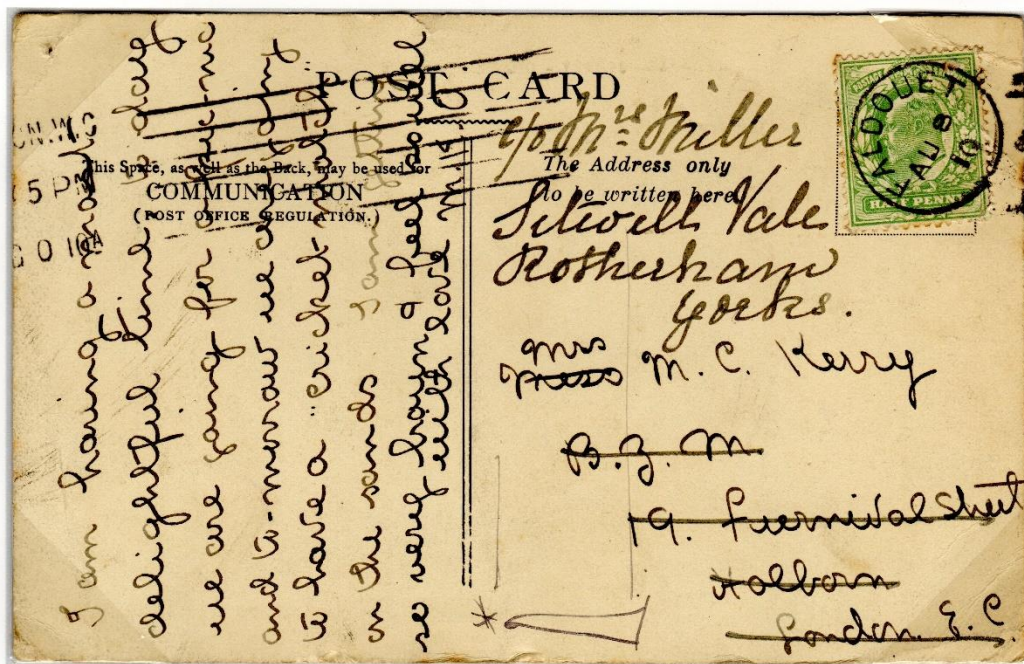 POST CARD
This Space, as well as the Back, may be used for
COMMUNICATION
(POST OFFICE REGULATION.)
The Address only
to be written here
FALDOUET
AU 8
10
HALF PENNY
5 PM
I am having a really
delightful time to-day
we are going for a pic-nic
and to-morrow we are going
to have a cricket match
on the sands I am getting
so very brown & feel so well
with love M.
c/o Mrs Miller
Sitwell Vale
Rotherham
Yorks.
Mrs
Miss M. C. Kerry
B.Z.M
19. Furnival Street
Holborn
London. E.C.